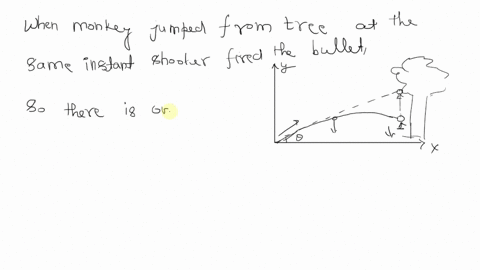 When monkey jumped from tree at the
same instant shooter fired the bullet,
So there is
y
θ
x